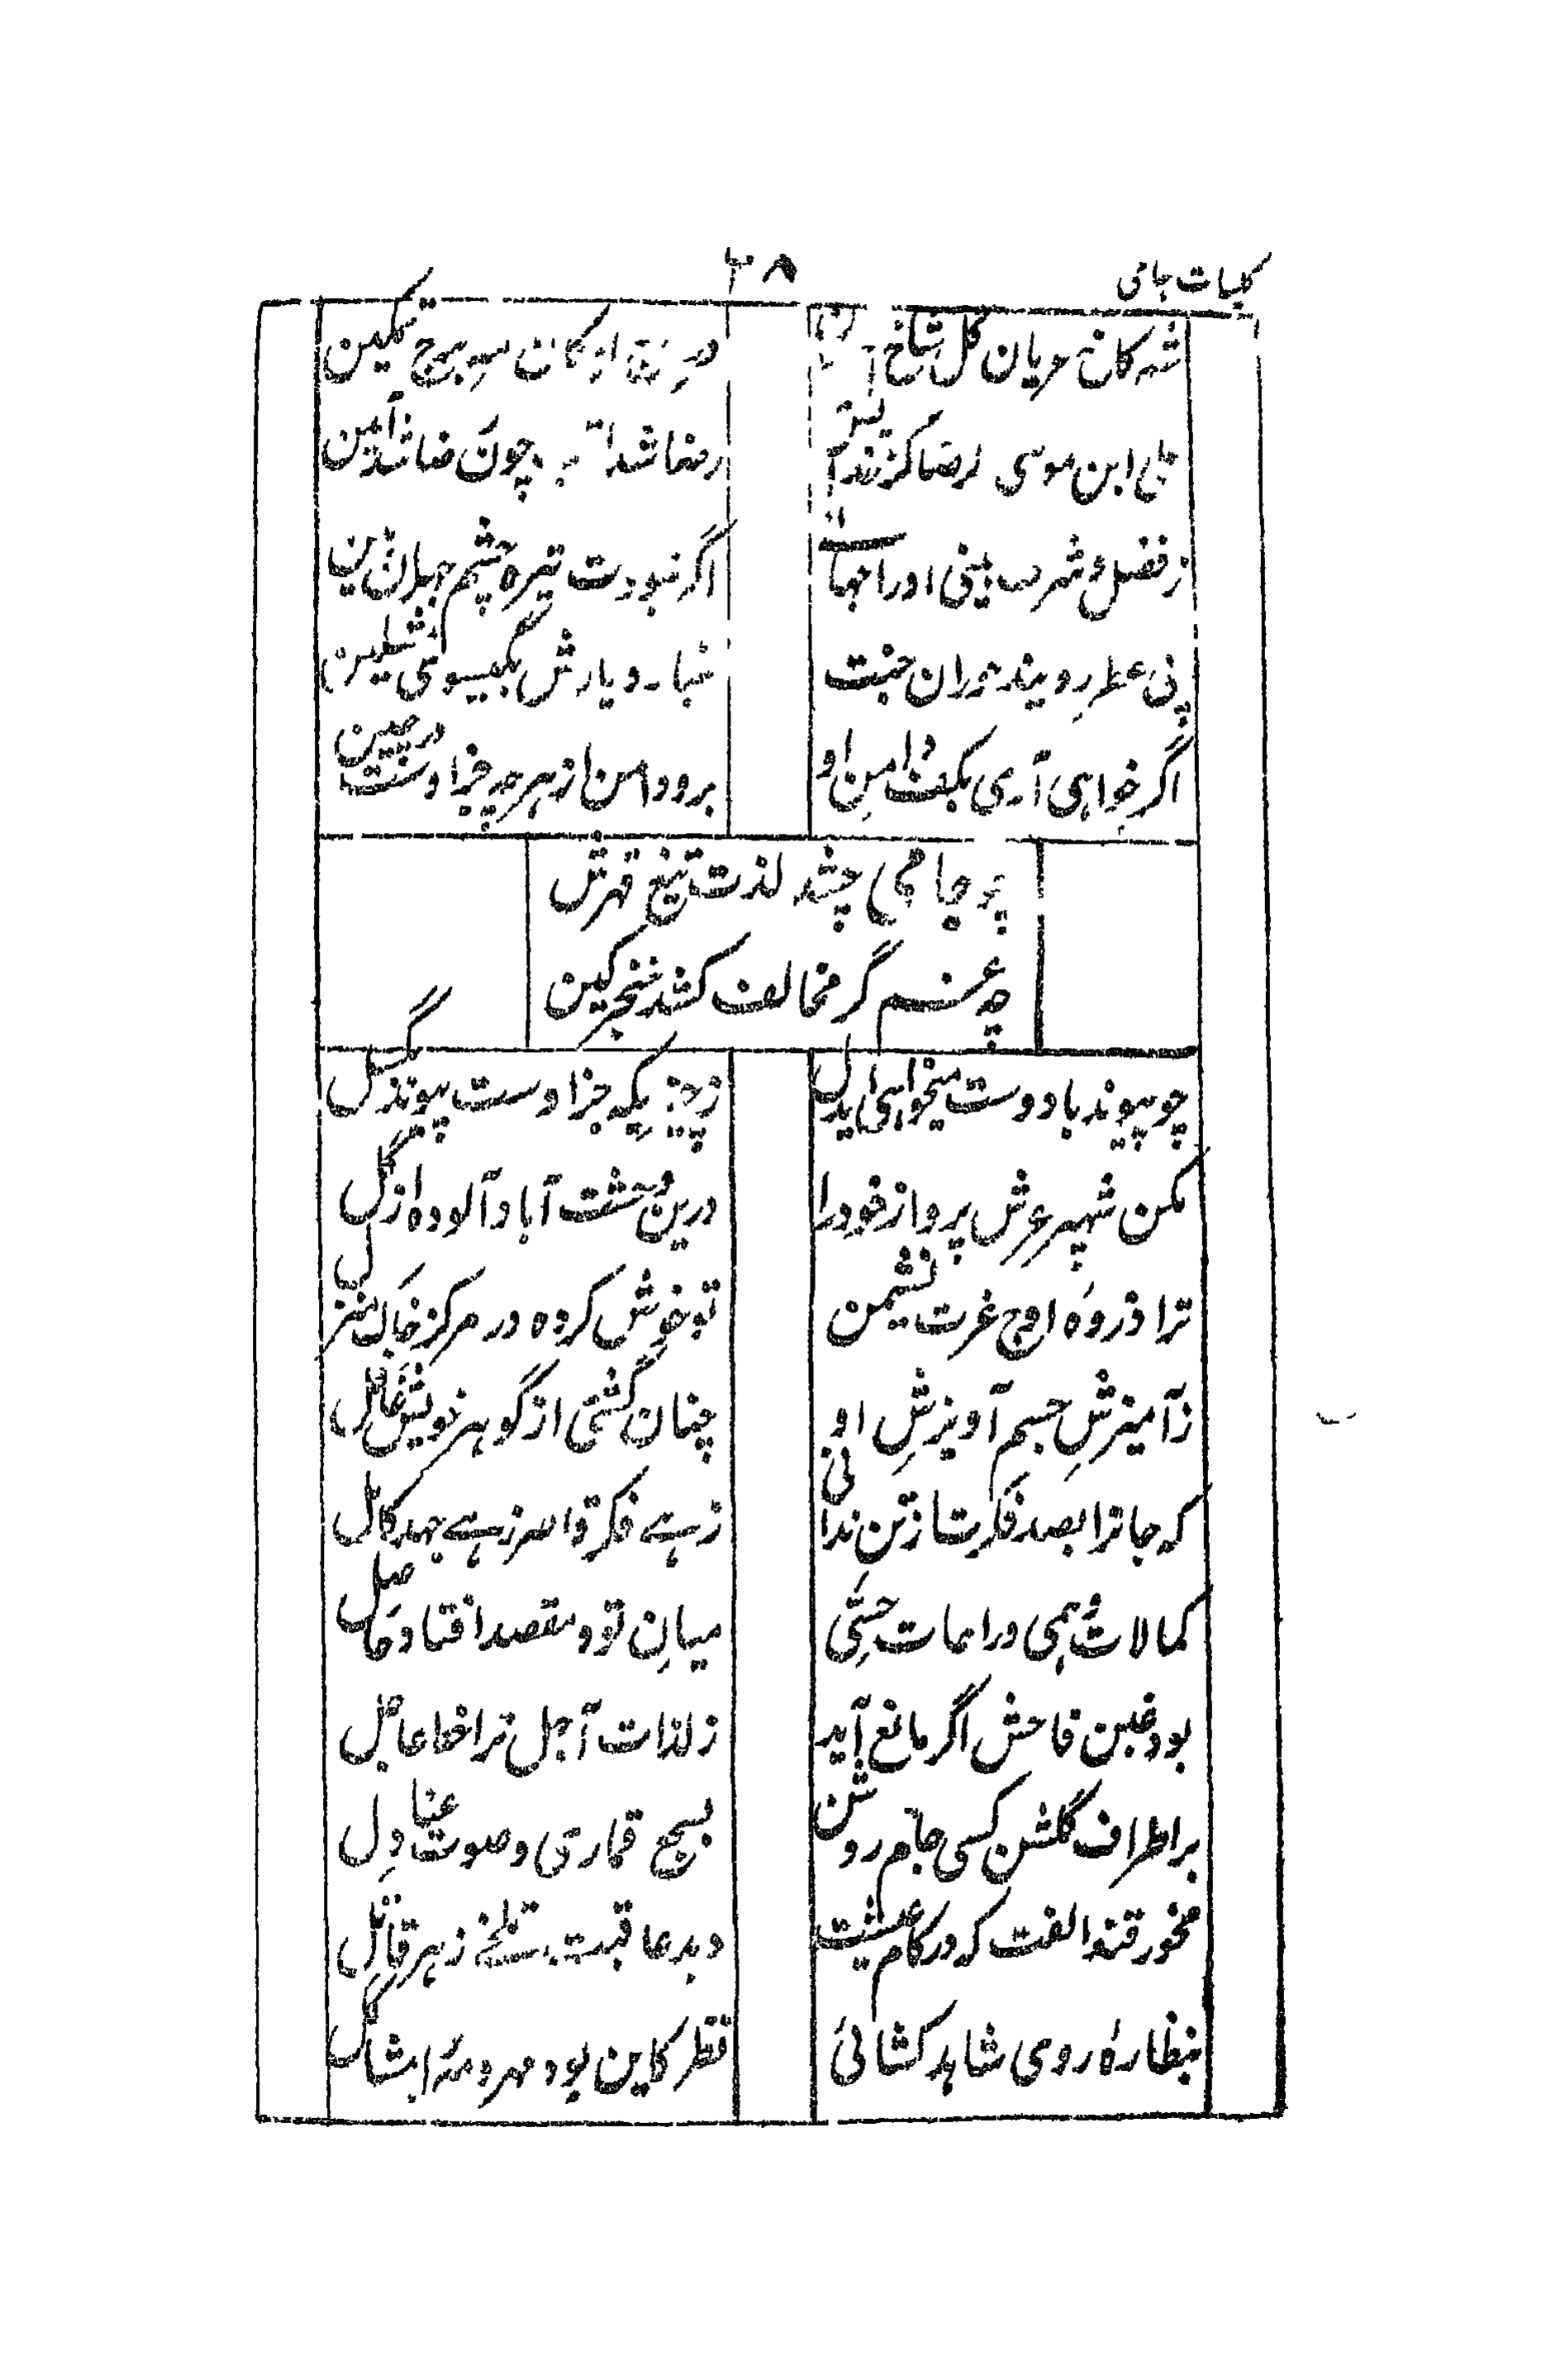 کلیات جامی
۳۸
شه کاخ عرفان گل شاخ
در درج امکان مه برج تمکین
علی ابن موسی الرضا کز خدایش
رضا شد لقب چون رضا شد آئین
ز فضل و شرف بینی او را جهانی
اگر نبودت تیره چشم جهان بین
پی عطر روبند حوران جنت
غبار دیارش بگیسوی مشکین
اگر خواهی آری بکف دامن او
برو دامن از هرچه جز اوست در چین
چو جامی چشد لذت تیغ قهرش
چه غم گر مخالف کشد خنجر کین
چو پیوند با دوست میخواهی ایدل
ز چیزیکه جز اوست پیوند بگسل
مکن شهپر عرش پرواز خود را
درین وحشت آباد آلوده از گل
ترا ذروهٔ اوج عزت نشیمن
تو خوش کرده در مرکز خاک منزل
ز آمیزش جسم آویزش او
چنان گشتی از گوهر خویش غافل
که جانرا بصد فکرت از تن ندانی
زهے فکر قاصر زهے جهد کامل
کمالات وهمی و راحات حسّی
میان تو و مقصد افتاد حاصل
بود غبن فاحش اگر مانع آید
ز لذات آجل ترا حظ عاجل
بر اطراف گلشن کسی جام روشن
بسجع قماری و صوت عنادل
مخور قند الفت که در کام عیشت
دهد عاقبت تلخے زهر قاتل
بنظارهٔ روی شاهد کشائی
نظر کاین بود مهر و مه را مشاکل